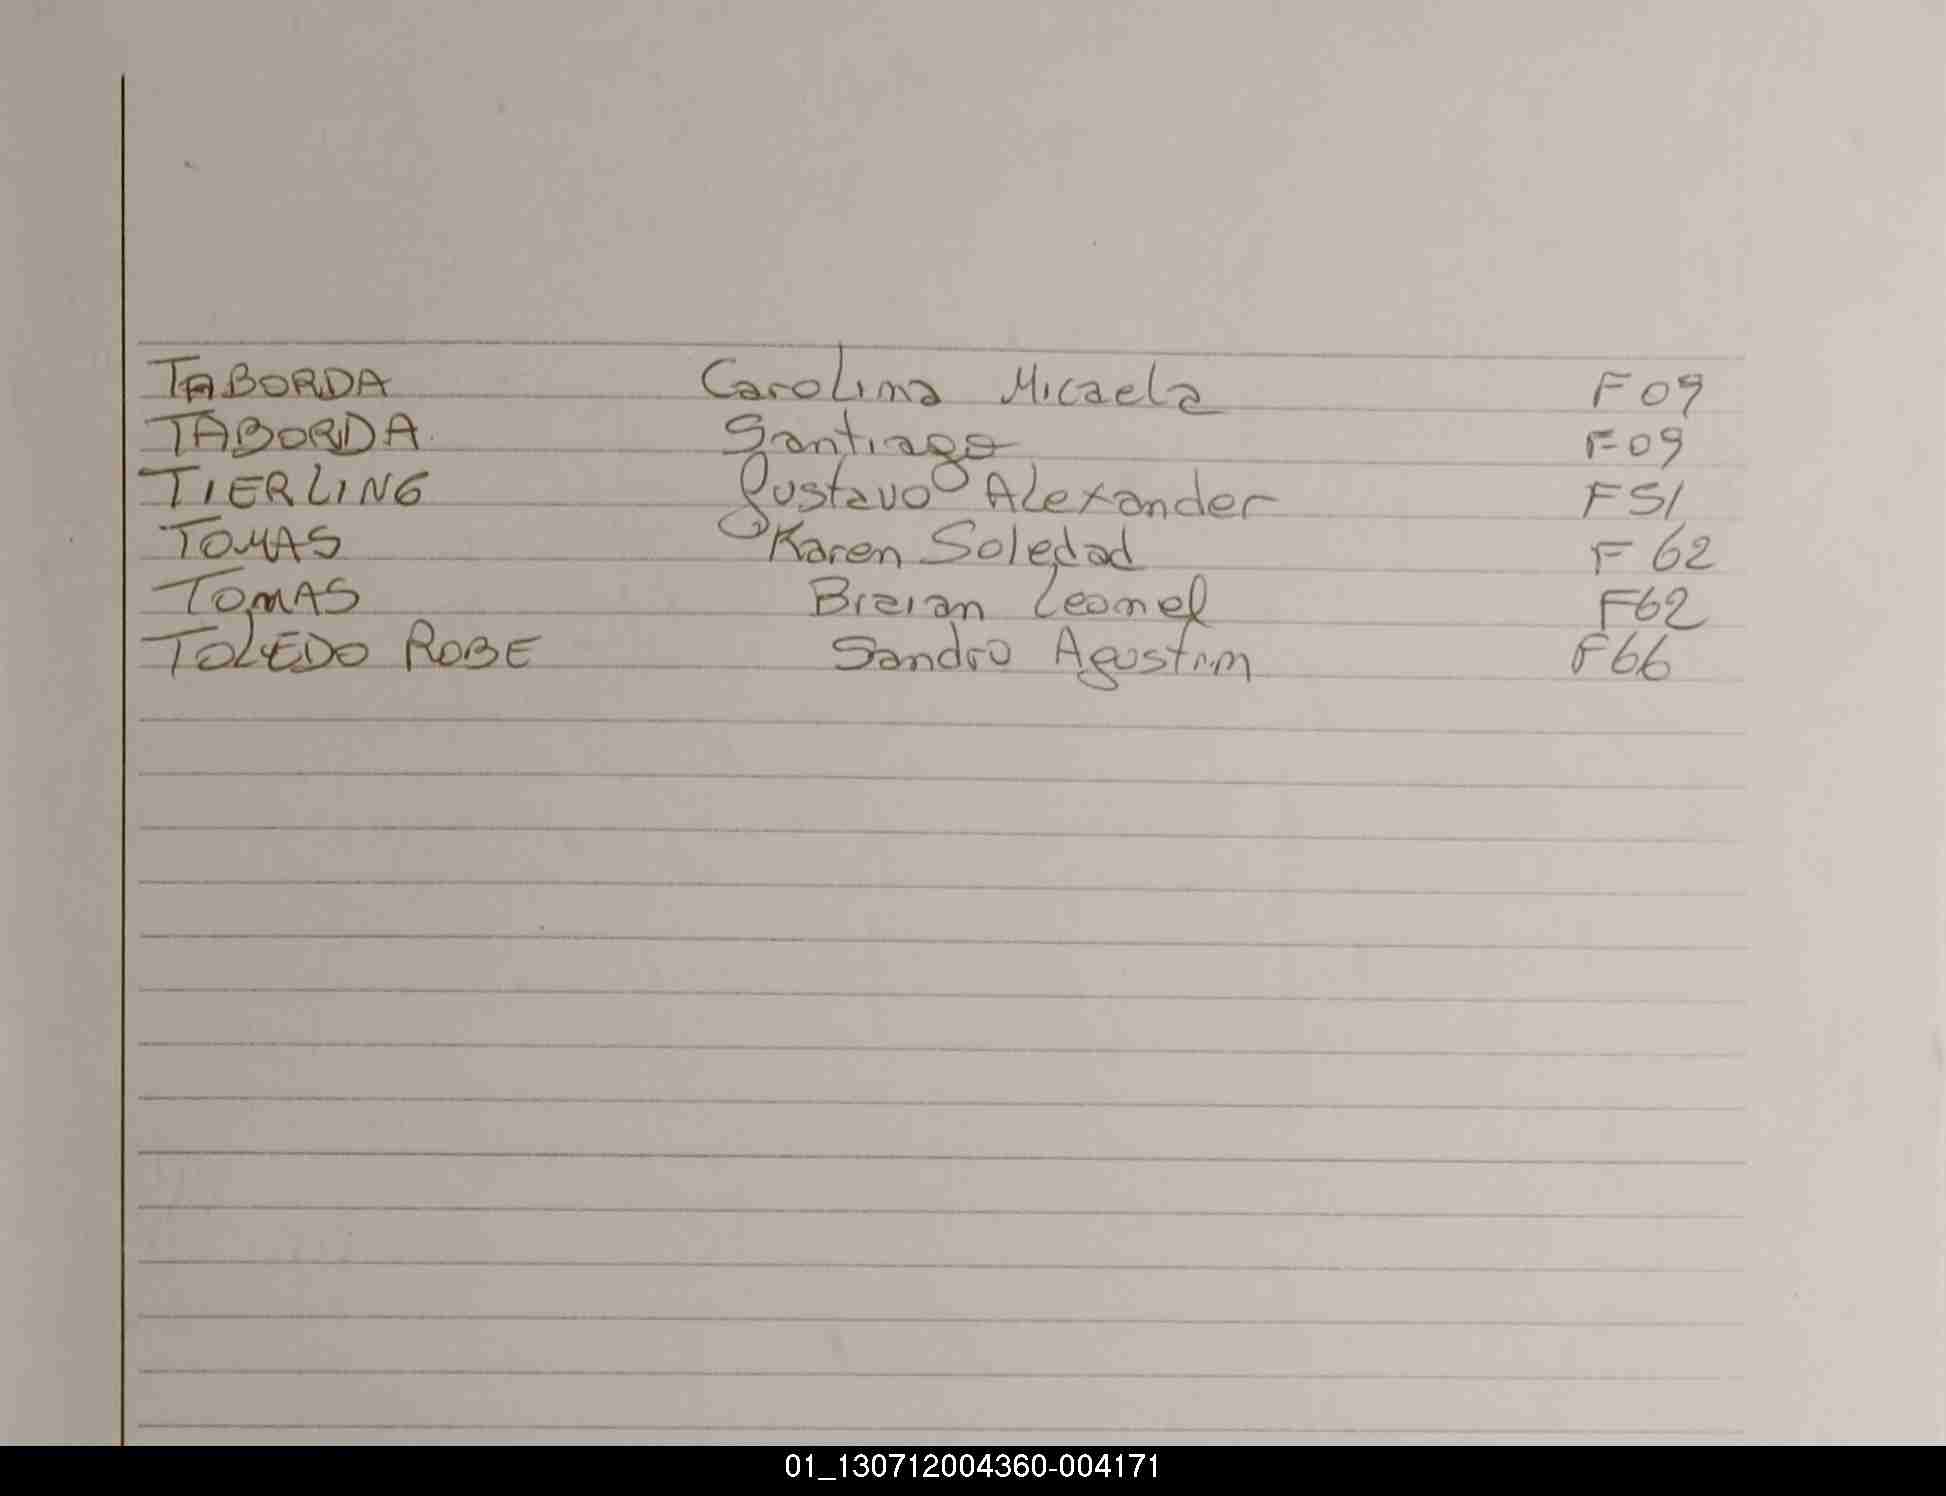 TABORDA Carolina Micaela F 09
TABORDA Santiago F 09
TIERLING Gustavo Alexander F 51
TOMAS Karen Soledad F 62
TOMAS Braian Leonel F62
TOLEDO ROBE Sandro Agustin F66
01_130712004360-004171